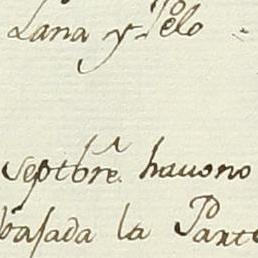 Lana y Pelo
Septbre. hauono
basada la Parte